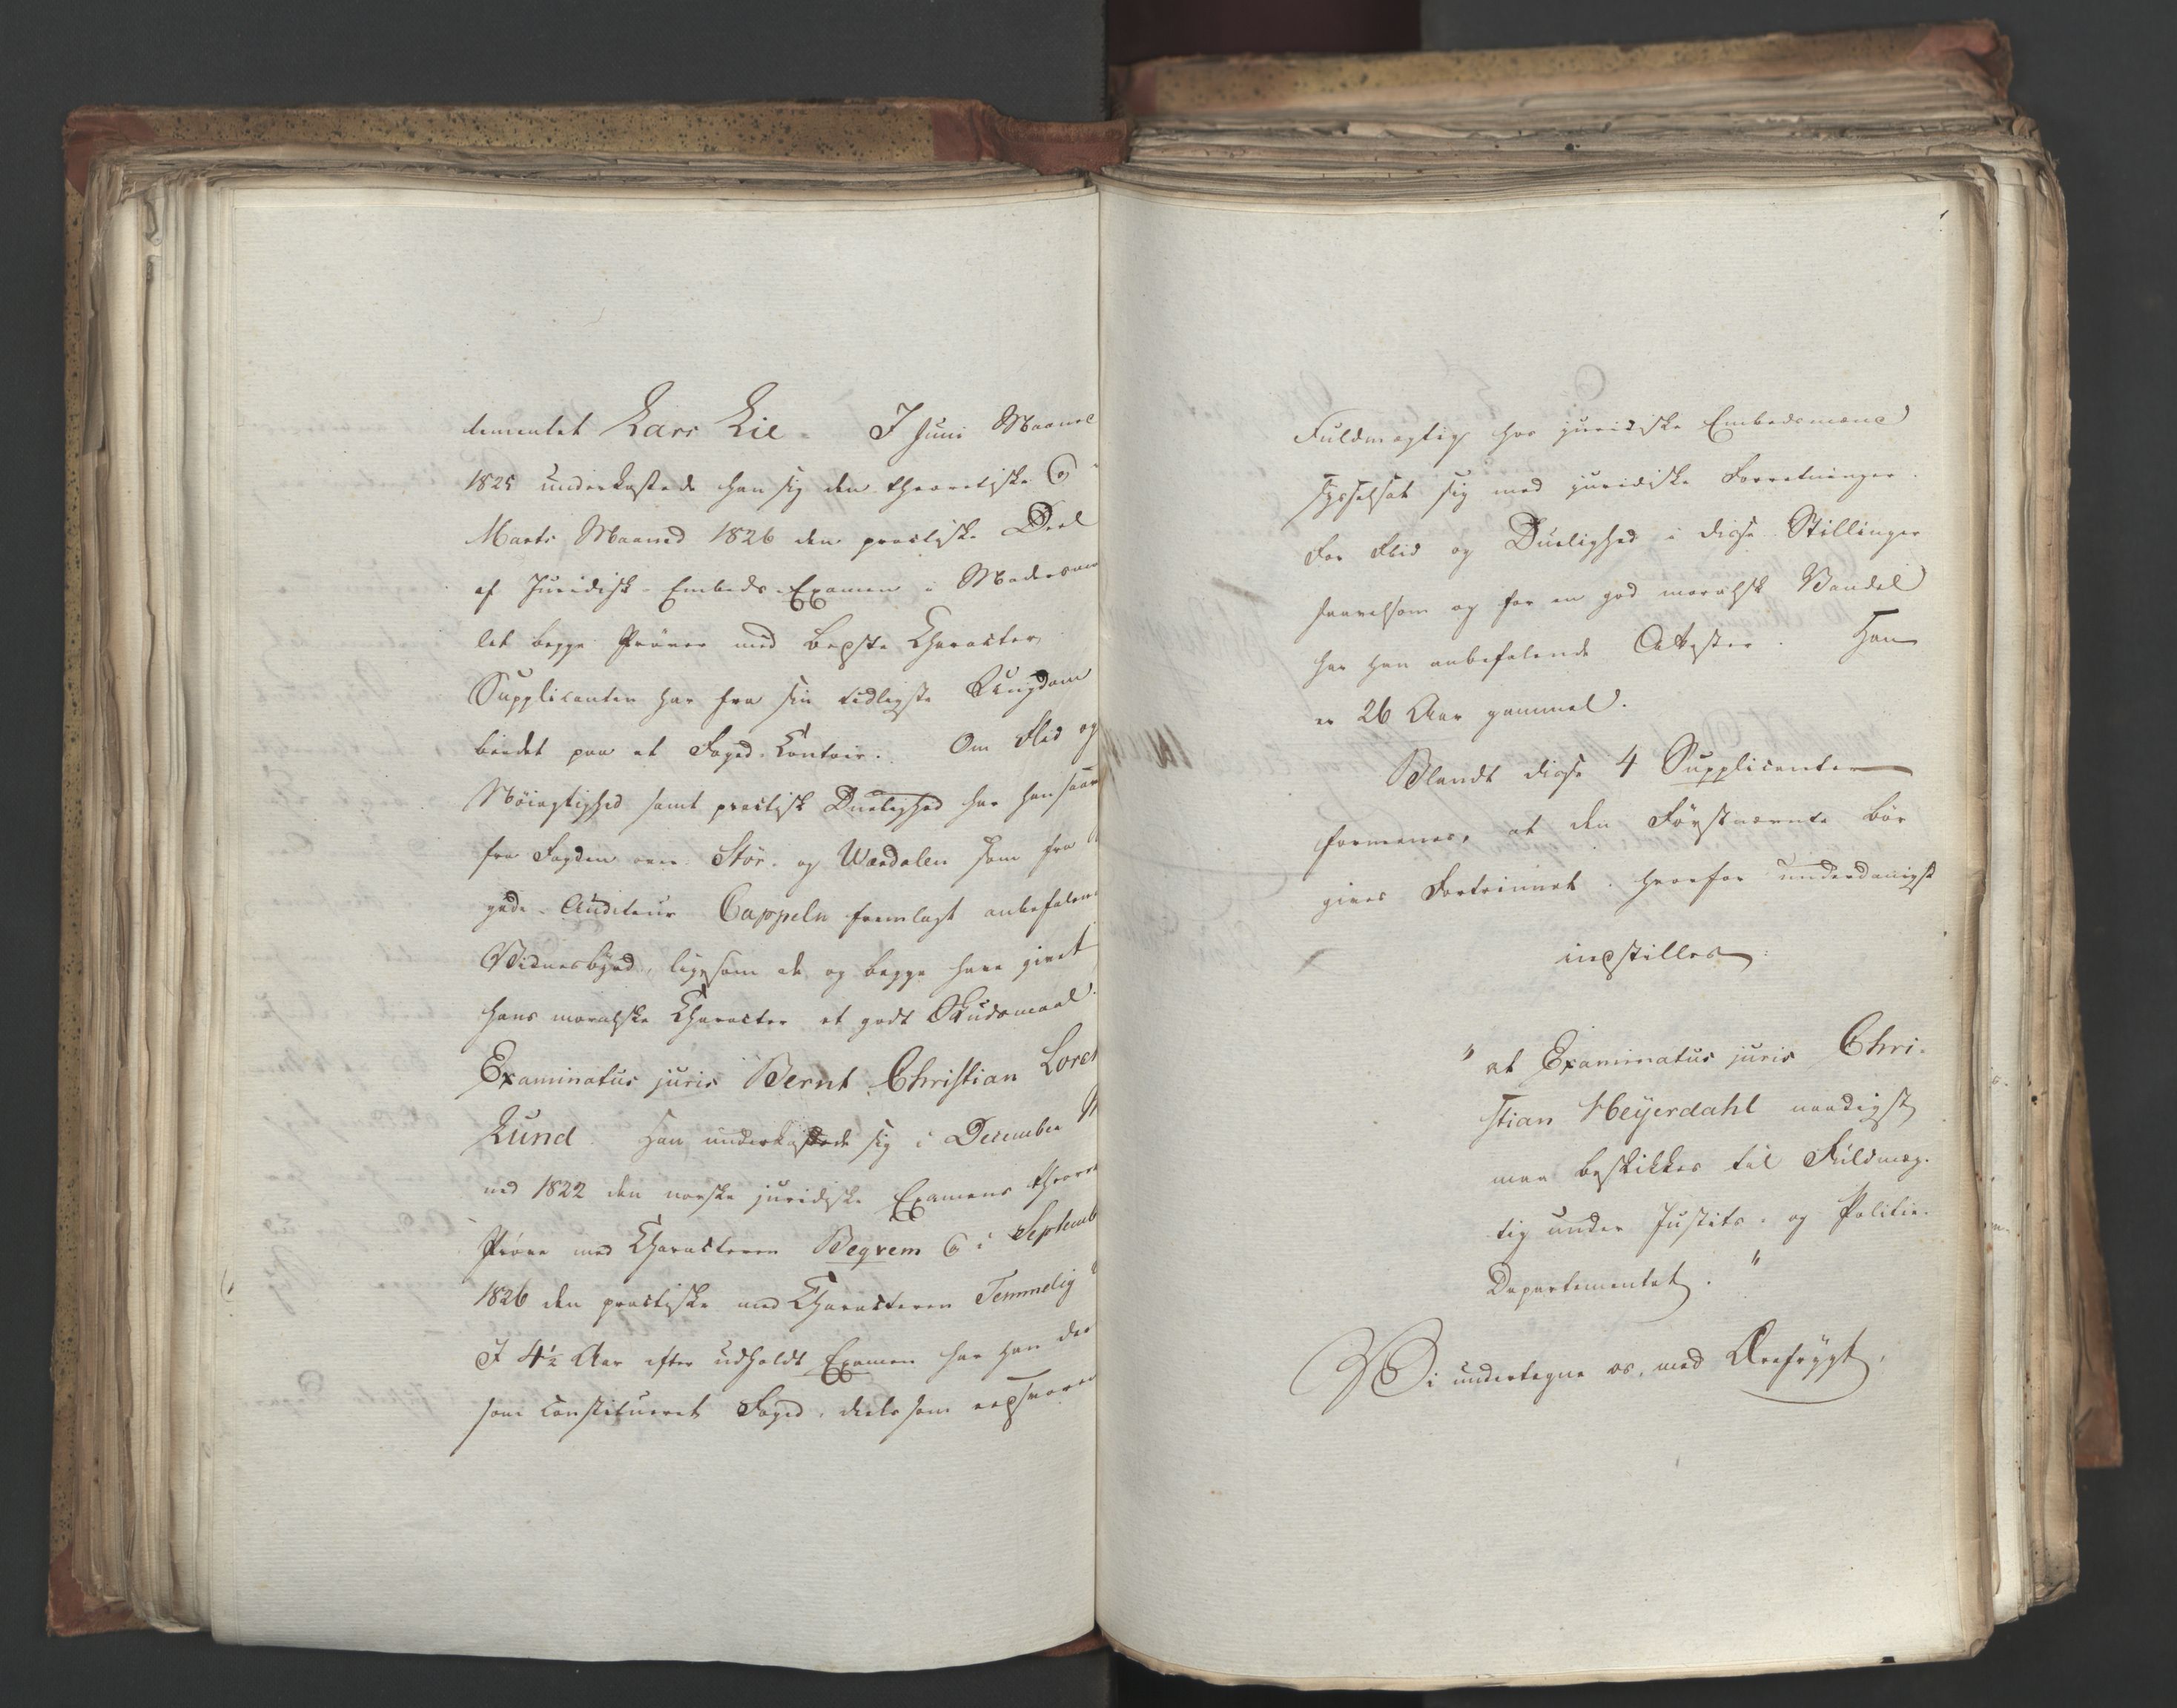 tementet Lars Lie. I Juni Maaned
1825 underkastede han sig den theoretiske &
Marts Maaned 1826 den practiske Deel
af Juridisk-Embeds-Examen i
let begge Prøver med bedste Character
Supplicanten har fra sin tidligste Ungdom
beidet paa et Foged-Contoir. Om Flid og
Nöiagtighed samt practisk Duelighed har han saav
fra Fogden over Stör- og Værdalen som fra
gade-Auditeur Cappeln fremlagt anbefalen
Vidnesbyrd, ligesom de og begge have givet
hans moralske Character et godt Skudsmaal.
Examinatus juris Bernt Christian Loren
Lund. Han underkastede sig i December M
ned 1822 den norske juridiske Examens theore
Pröve med Characteren Beqvem & i Septemb
1826 den practiske med Characteren Temmelig
I 4½ Aar efter udholdt Examen har han dee
som constitueret Foged, deels som eedsvoren
Fuldmægtig hos juridiske Embedsmænd
sysselsat sig med juridiske Forretninger.
For Flid og Duelighed i disse Stillinger
saavelsom og for en god moralsk Vandel
har han anbefalende Attester. Han
er 26 Aar gammel.
Blandt disse 4 Supplicanter
formenes, at den Förstnævnte bör
gives Fortrinnet, hvorfor underdanigst
indstilles:
"at Examinatus juris Chri-
stian Heyerdahl naadigst
maa beskikkes til Fuldmæg-
tig under Justits- og Politie-
Departementet."
Vi undertegne os, med Ærefrygt,